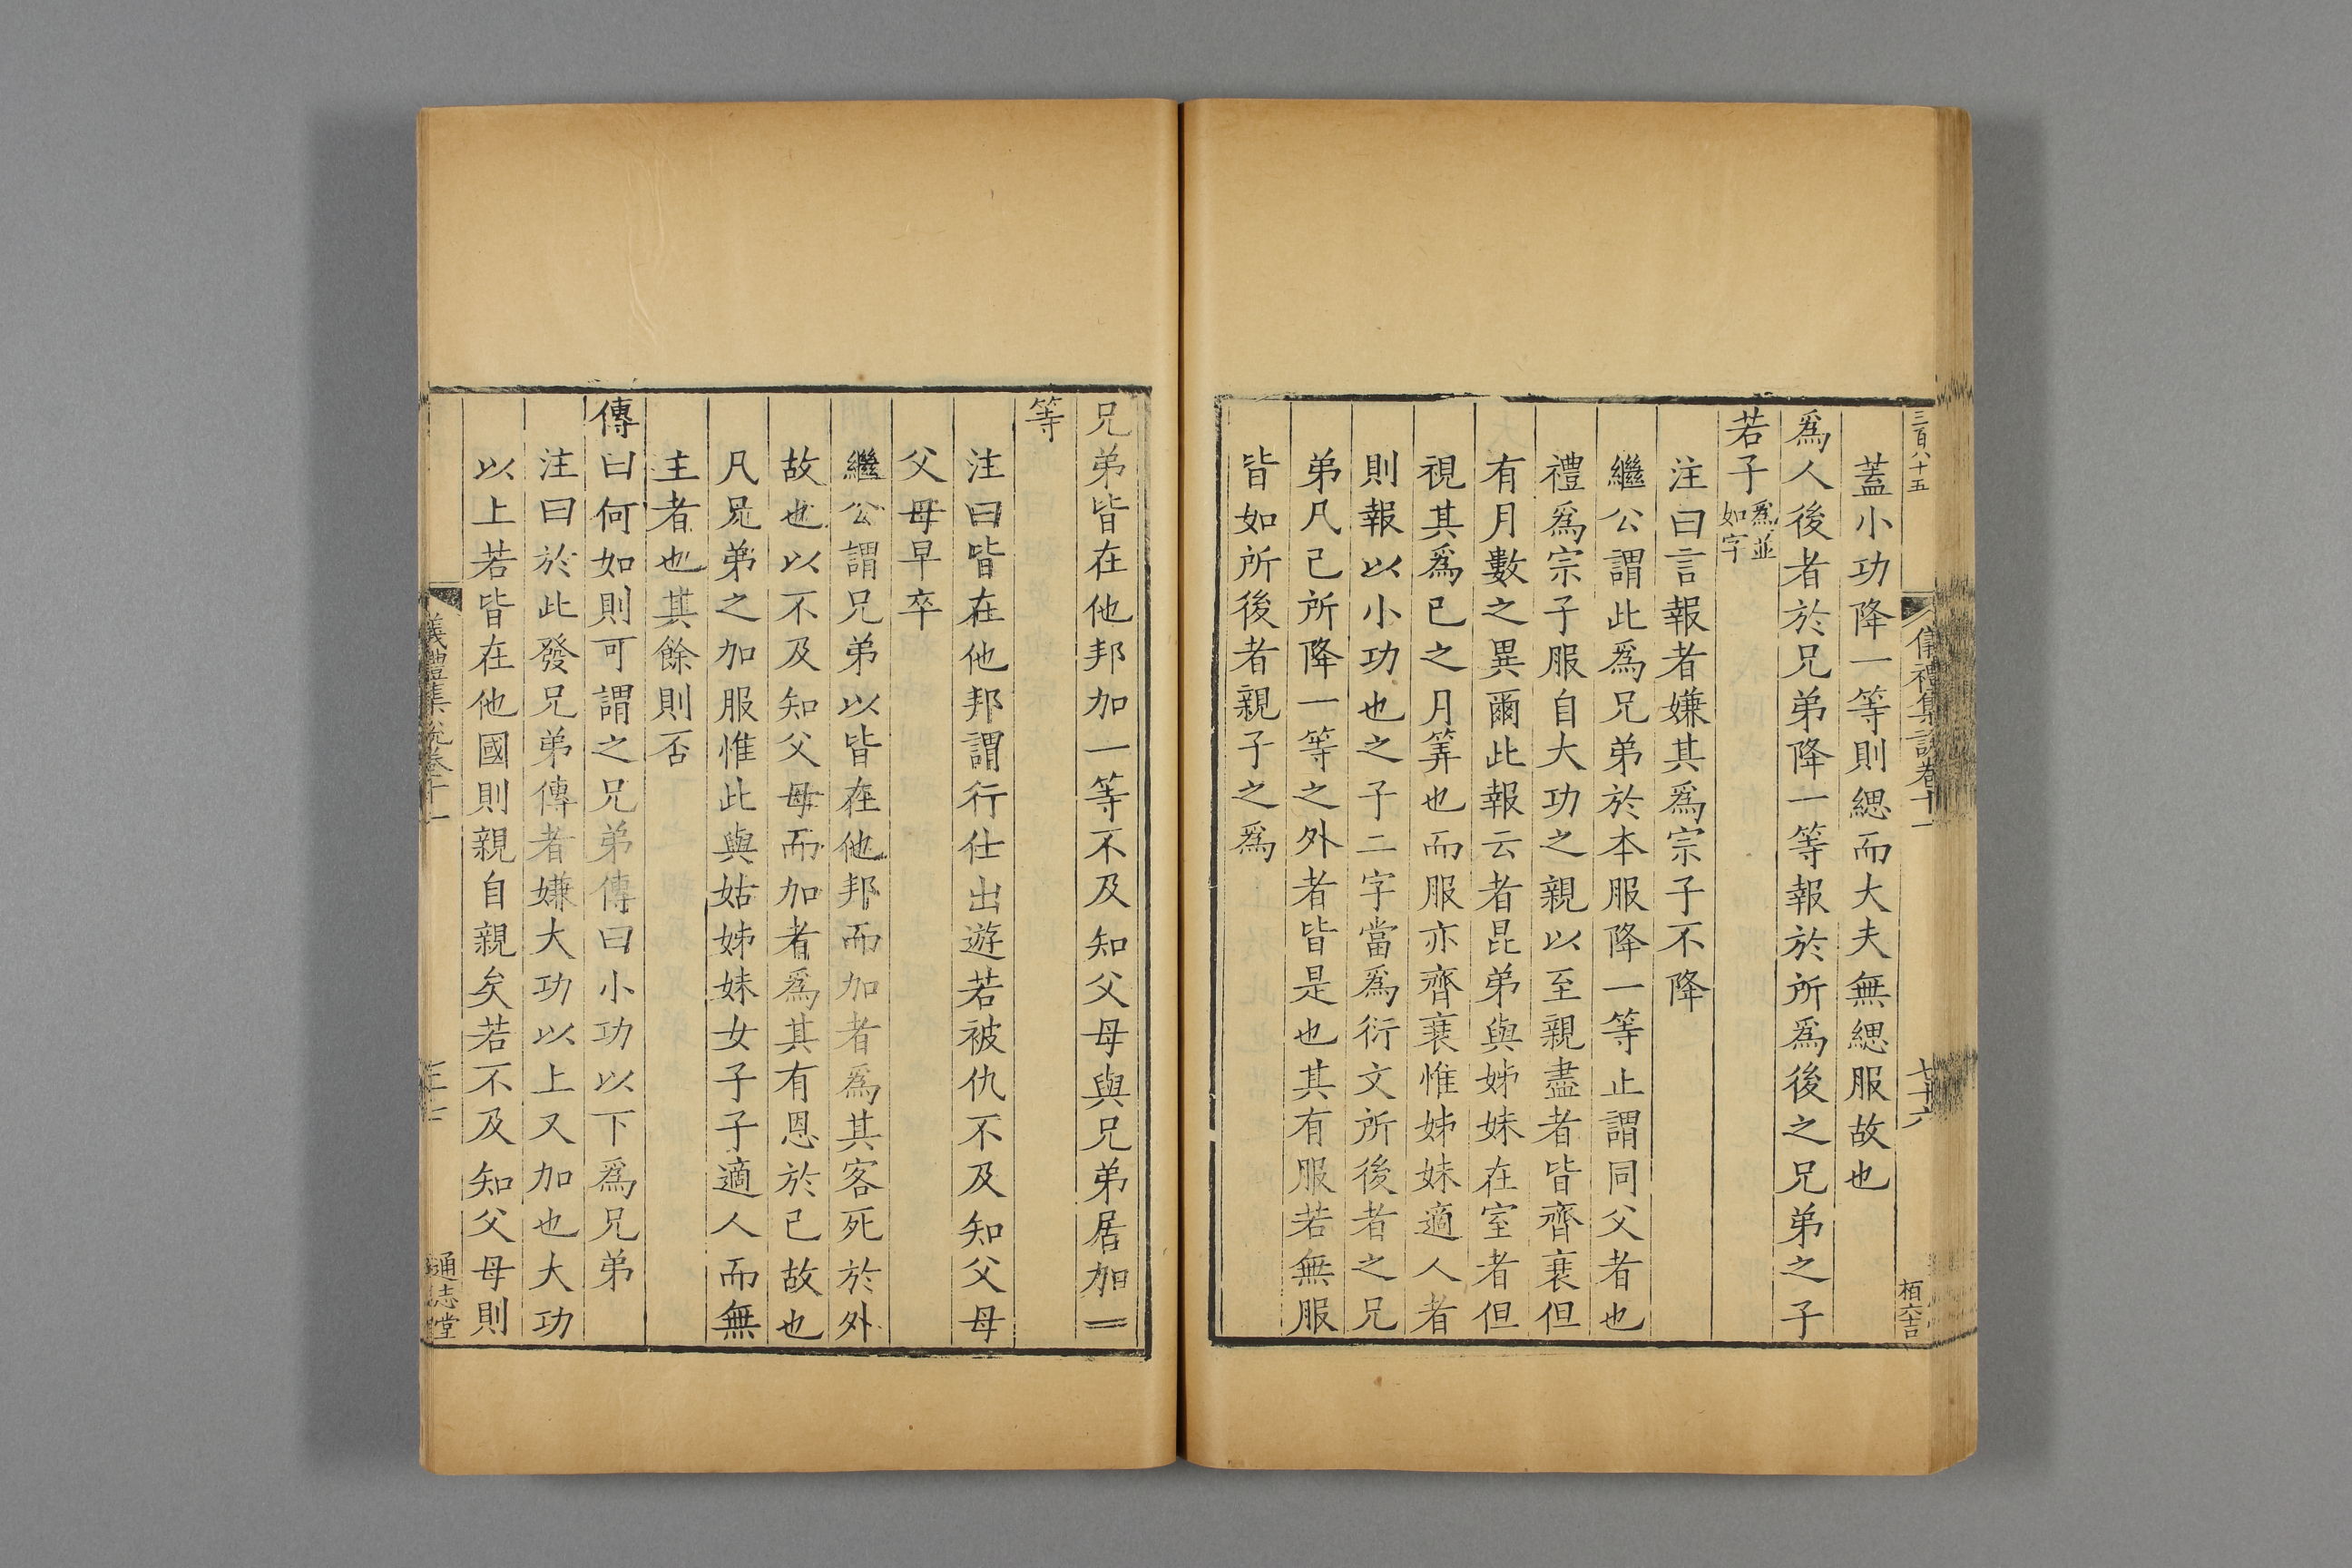 三百八十五
儀禮集說卷十一
七十六
栢六吉
蓋小功降一等則緦而大夫無緦服故也
爲人後者於兄弟降一等報於所爲後之兄弟之子
若子爲並如字
注曰言報者嫌其爲宗子不降
繼公謂此爲兄弟於本服降一等止謂同父者也
禮爲宗子服自大功之親以至親盡者皆齊衰但
有月數之異爾此報云者昆弟與姊妹在室者但
視其爲已之月筭也而服亦齊衰惟姊妹適人者
則報以小功也之子二字當爲衍文所後者之兄
弟凡己所降一等之外者皆是也其有服若無服
皆如所後者親子之爲
兄弟皆在他邦加一等不及知父母與兄弟居加一
等
注曰皆在他邦謂行仕出遊若被仇不及知父母
父母早卒
繼公謂兄弟以皆在他邦而加者爲其客死於外
故也以不及知父母而加者爲其有恩於己故也
凡兄弟之加服惟此與姑姊妹女子子適人而無
主者也其餘則否
傳曰何如則可謂之兄弟傳曰小功以下爲兄弟
注曰於此發兄弟傳者嫌大功以上又加也大功
以上若皆在他國則親自親矣若不及知父母則
儀禮集說卷十一
通志堂